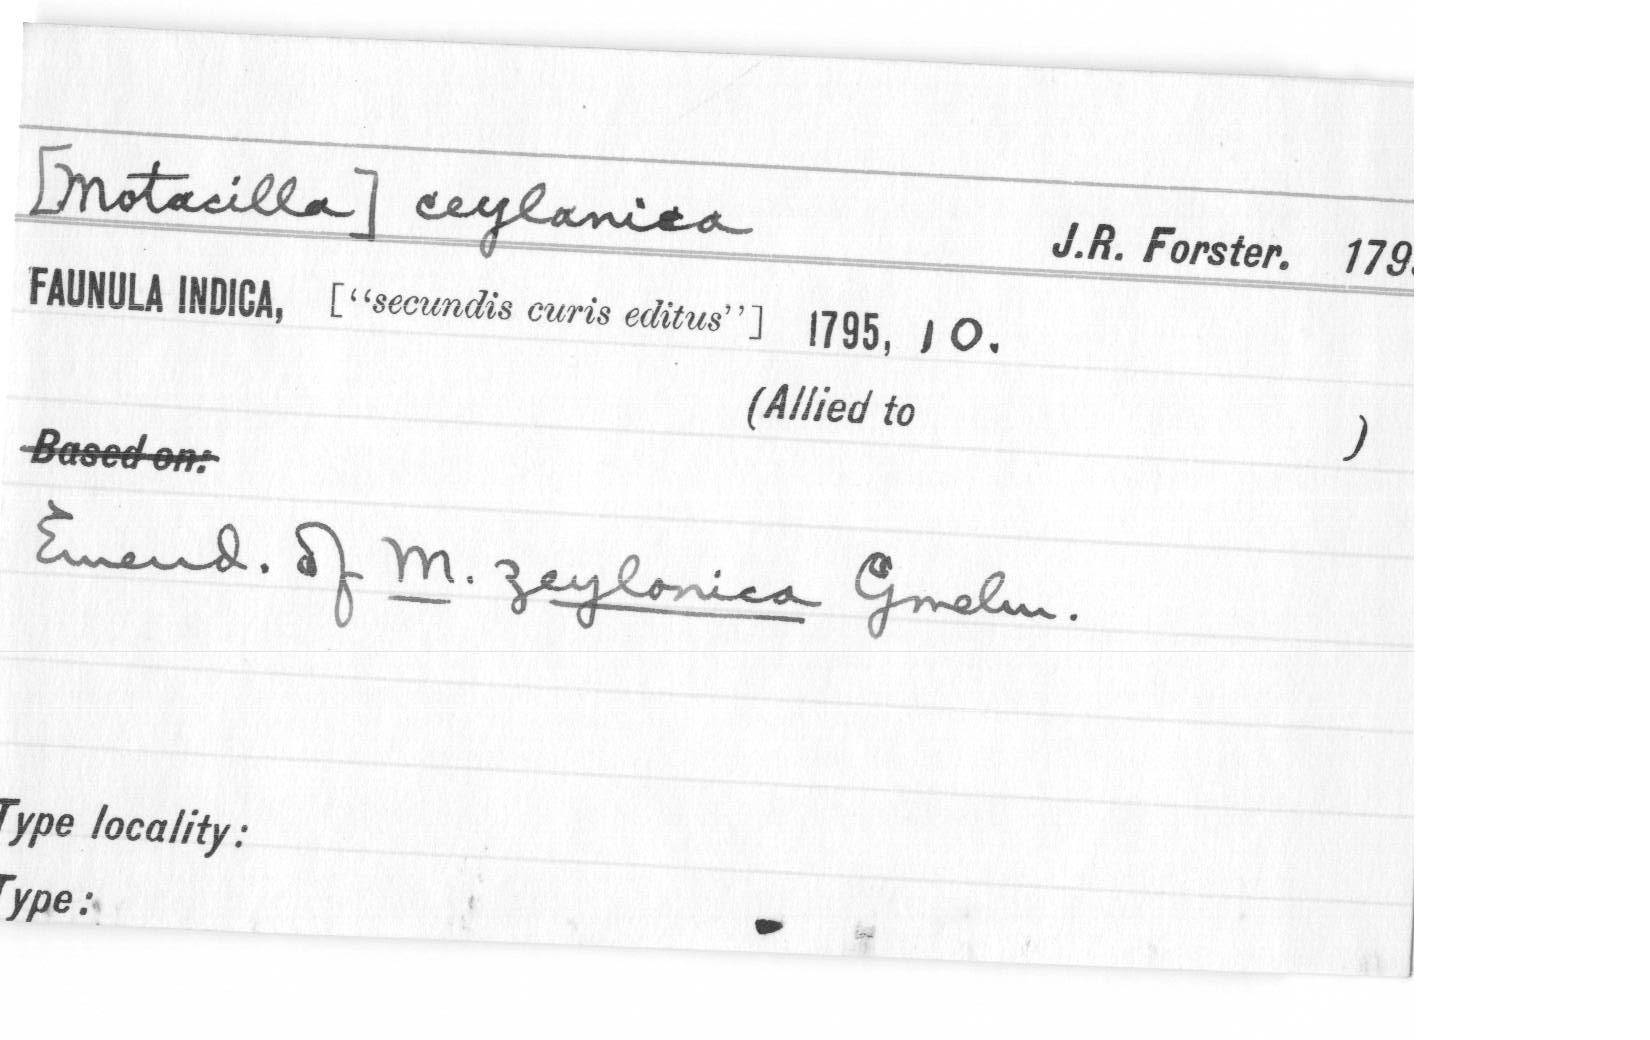 [Motacilla] ceylanica J.R. Forster. 179
FAUNULA INDICA, ["secundis curis editus"] 1795, 10.
(Allied to )
Based on:
Emend. of M. zeylonica Gmelin.
Type locality:
Type: